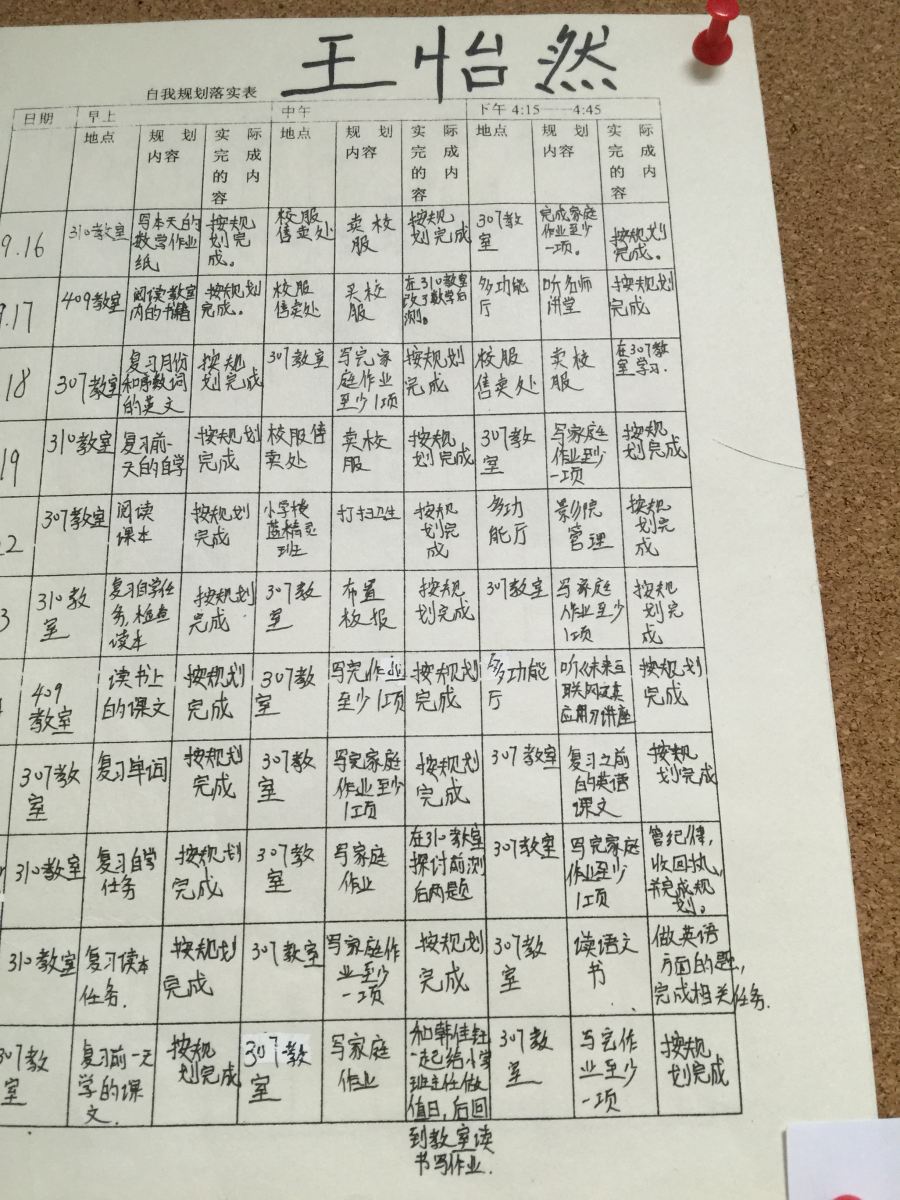 王怡然
自我规划落实表
日期 早上 中午 下午 4:15——4:45
地点 规划内容 实际完成的内容 地点 规划内容 实际完成的内容 地点 规划内容 实际完成的内容
9.16 310教室 写本天的数学作业纸 按规划完成。 校服售卖处 卖校服 按规划完成 307教室 完成家庭作业至少一项。 按规划完成。
9.17 409教室 阅读教室内的书籍 按规划完成。 校服售卖处 买校服 在310教室改了数学自测。 多功能厅 听名师讲堂 按规划完成
18 307教室 复习月份和序数词的英文 按规划完成 307教室 写完家庭作业至少1项 按规划完成 校服售卖处 卖校服 在307教室学习.
19 310教室 复习前一天的自学 按规划完成 校服售卖处 卖校服 按规划完成 307教室 写家庭作业至少一项 按规划完成
22 307教室 阅读课本 按规划完成 小学楼蓝精灵班 打扫卫生 按规划完成 多功能厅 影院管理 按规划完成
3 310教室 复习自学任务,检查读本 按规划完成 307教室 布置板报 按规划完成 307教室 写家庭作业至少1项 按规划完成
409教室 读书上的课文 按规划完成 307教室 写完作业至少1项 按规划完成 多功能厅 听《未来互联网及其应用》讲座 按规划完成
307教室 复习单词 按规划完成 307教室 写完家庭作业至少1项 按规划完成 307教室 复习之前的英语课文 按规划完成
310教室 复习自学任务 按规划完成 307教室 写家庭作业 在310教室探讨前测后两题 307教室 写完家庭作业至少1项 管纪律,收回执,并完成规划。
310教室 复习读本任务. 按规划完成 307教室 写家庭作业至少一项 按规划完成 307教室 读语文书 做英语方面的题,完成相关任务.
307教室 复习前一天学的课文. 按规划完成 307教室 写家庭作业 和韩佳钰一起给小学班主任做值日,后回到教室读书写作业. 307教室 写完作业至少一项 按规划完成